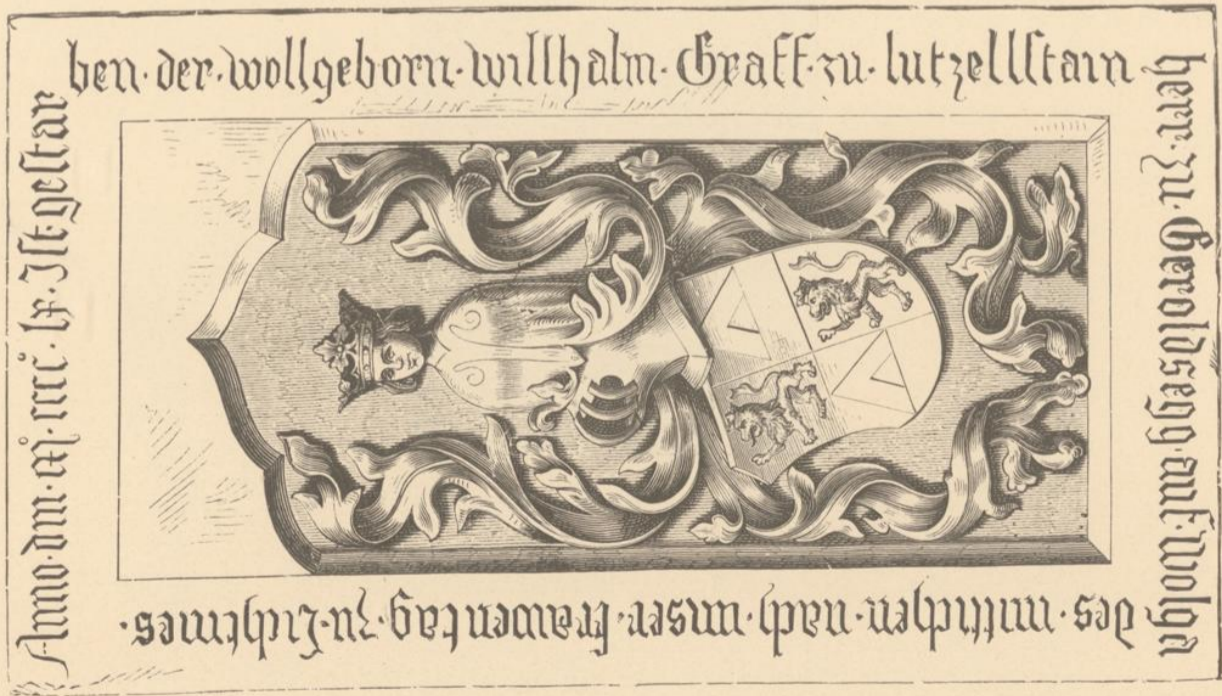 Anno·dm·Mͦ·iiiiͨ·lx·Ist·gestar
ben·der·wollgeborn·willhalm·Graff·zu·lutzellstain
herr·zu·Geroldsegg·auf·
des·mittichen·nach·unser·frawentag·zu·Lichtmes·